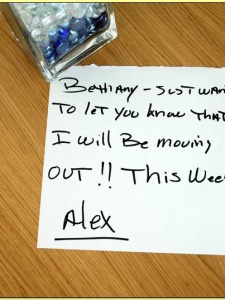 BETHANY - JUST WAN
TO LET YOU KNOW THAT
I WILL BE MOVING
OUT!! THIS WEE
Alex